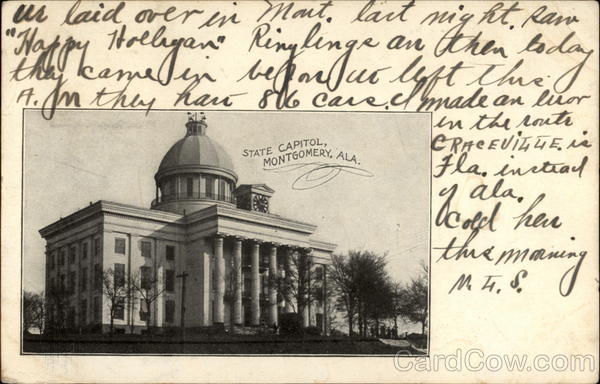 We laid over in Mont. last night. saw
"Happy Holligan" Ringlings are then today
they came in before we left this
A.M they have 86 cars. I made an error
in the route
GRACEVILLE is
Fla. instead
of Ala.
Cold here
this morning
M.F.S.
STATE CAPITOL,
MONTGOMERY, ALA.
CardCow.com